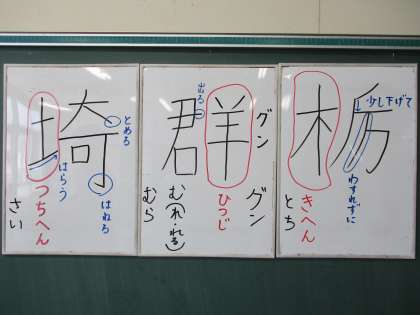 栃
少し下げて
わすれずに
きへん
とち
群
グン
グン
ひつじ
出る
む(れ れる)
むら
埼
とめる
はねる
はらう
つちへん
さい